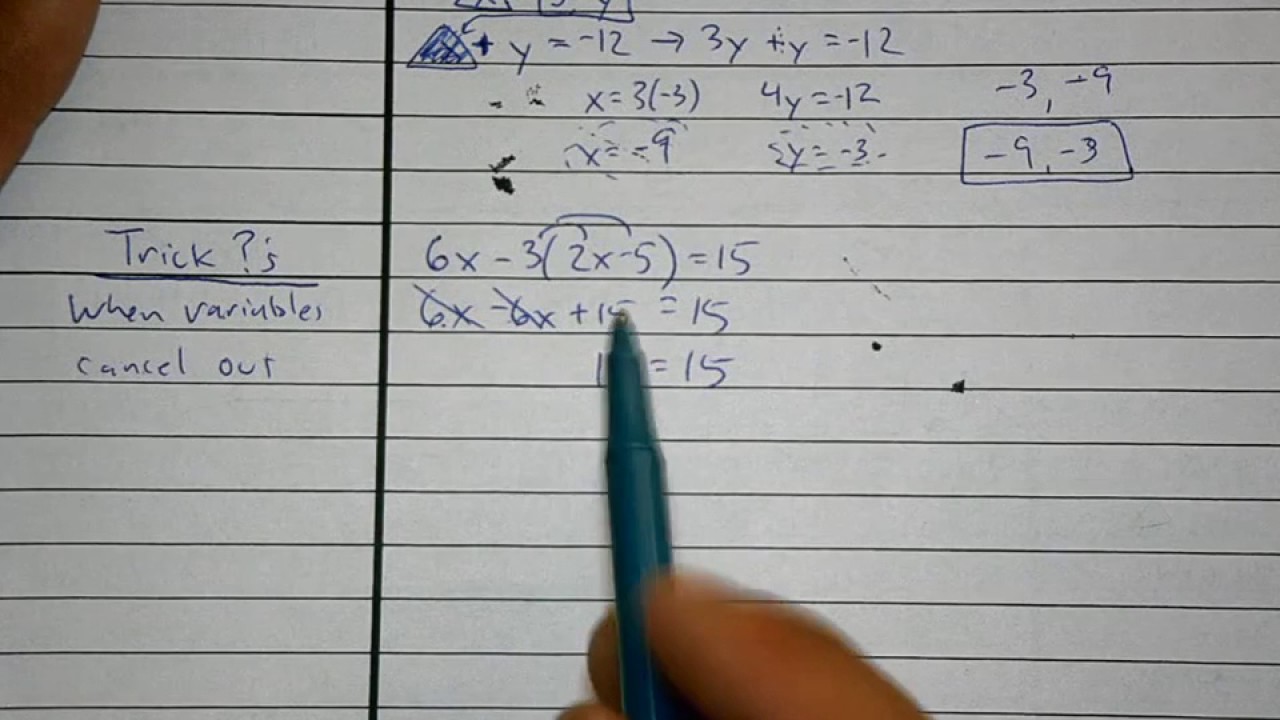 + y = -12 → 3y + y = -12
x = 3(-3) 4y = -12 -3, -9
x = -9 y = -3 -9, -3
Trick ?'s 6x - 3(2x-5) = 15
When variables 6x - 6x + 15 = 15
cancel out = 15